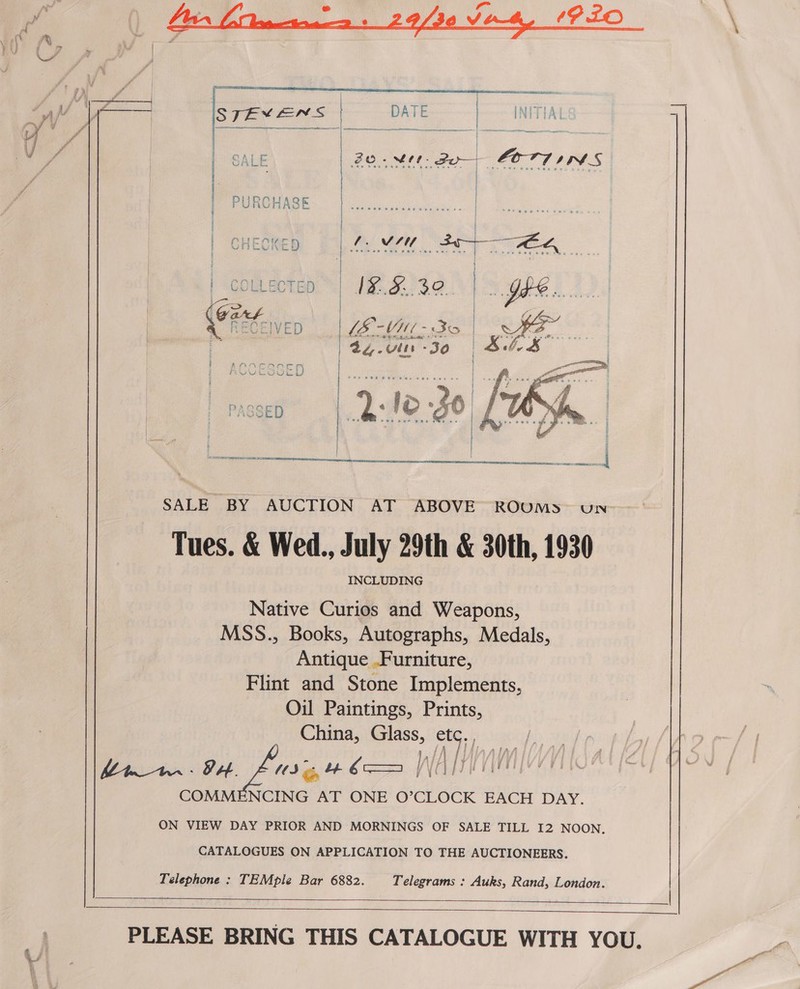 29/30 July 1930
STEVENS DATE INITIALS
SALE 30. VII. 30 COTTINS
PURCHASE
CHECKED 1. VIII 30
COLLECTED 18.8.30.
RECEIVED 18-VIII-30
24.VIII-30
ACCESSED
PASSED 2.10.30
SALE BY AUCTION AT ABOVE ROOMS ON
Tues. & Wed., July 29th & 30th, 1930
INCLUDING
Native Curios and Weapons,
MSS., Books, Autographs, Medals,
Antique Furniture,
Flint and Stone Implements,
Oil Paintings, Prints,
China, Glass, etc.,
COMMENCING AT ONE O'CLOCK EACH DAY.
ON VIEW DAY PRIOR AND MORNINGS OF SALE TILL 12 NOON.
CATALOGUES ON APPLICATION TO THE AUCTIONEERS.
Telephone : TEMple Bar 6882. Telegrams : Auks, Rand, London.
PLEASE BRING THIS CATALOGUE WITH YOU.